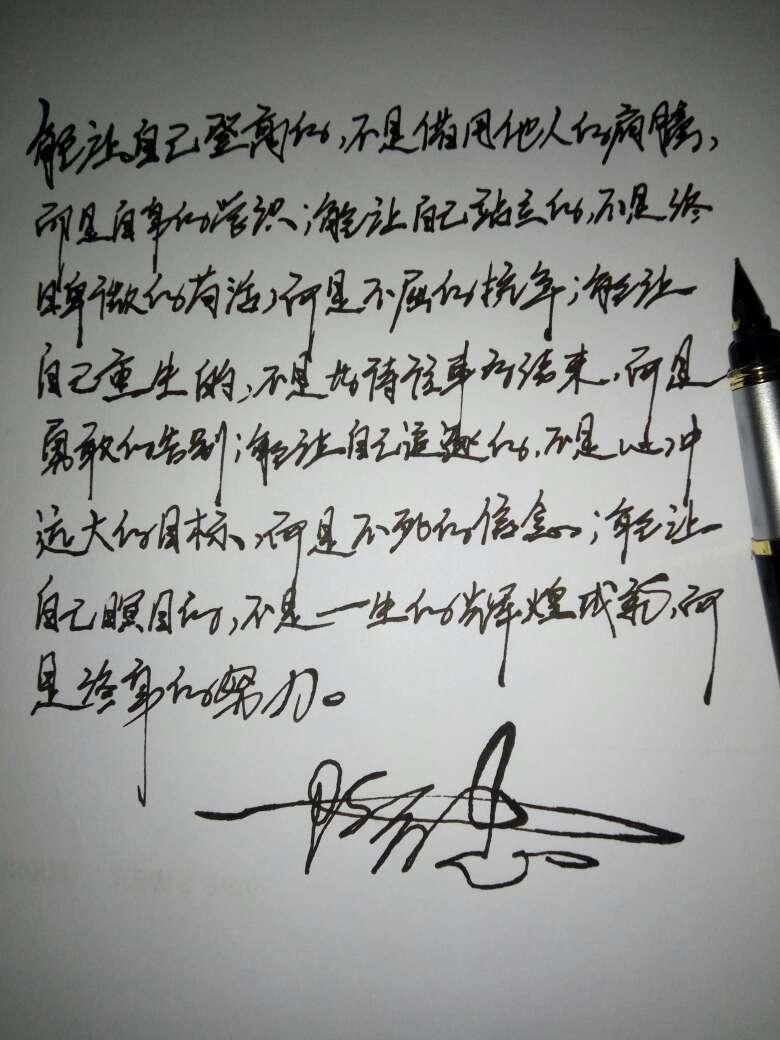 能让自己登高的,不是借用他人的肩膀,
而是自身的学识;能让自己站立的,不是终
日卑微的苟活,而是不屈的抗争;能让
自己重生的,不是等待往事的结束,而是
勇敢的告别;能让自己追逐的,不是心中
远大的目标,而是不死的信念;能让
自己瞑目的,不是一生的辉煌成就,而
是终身的努力。